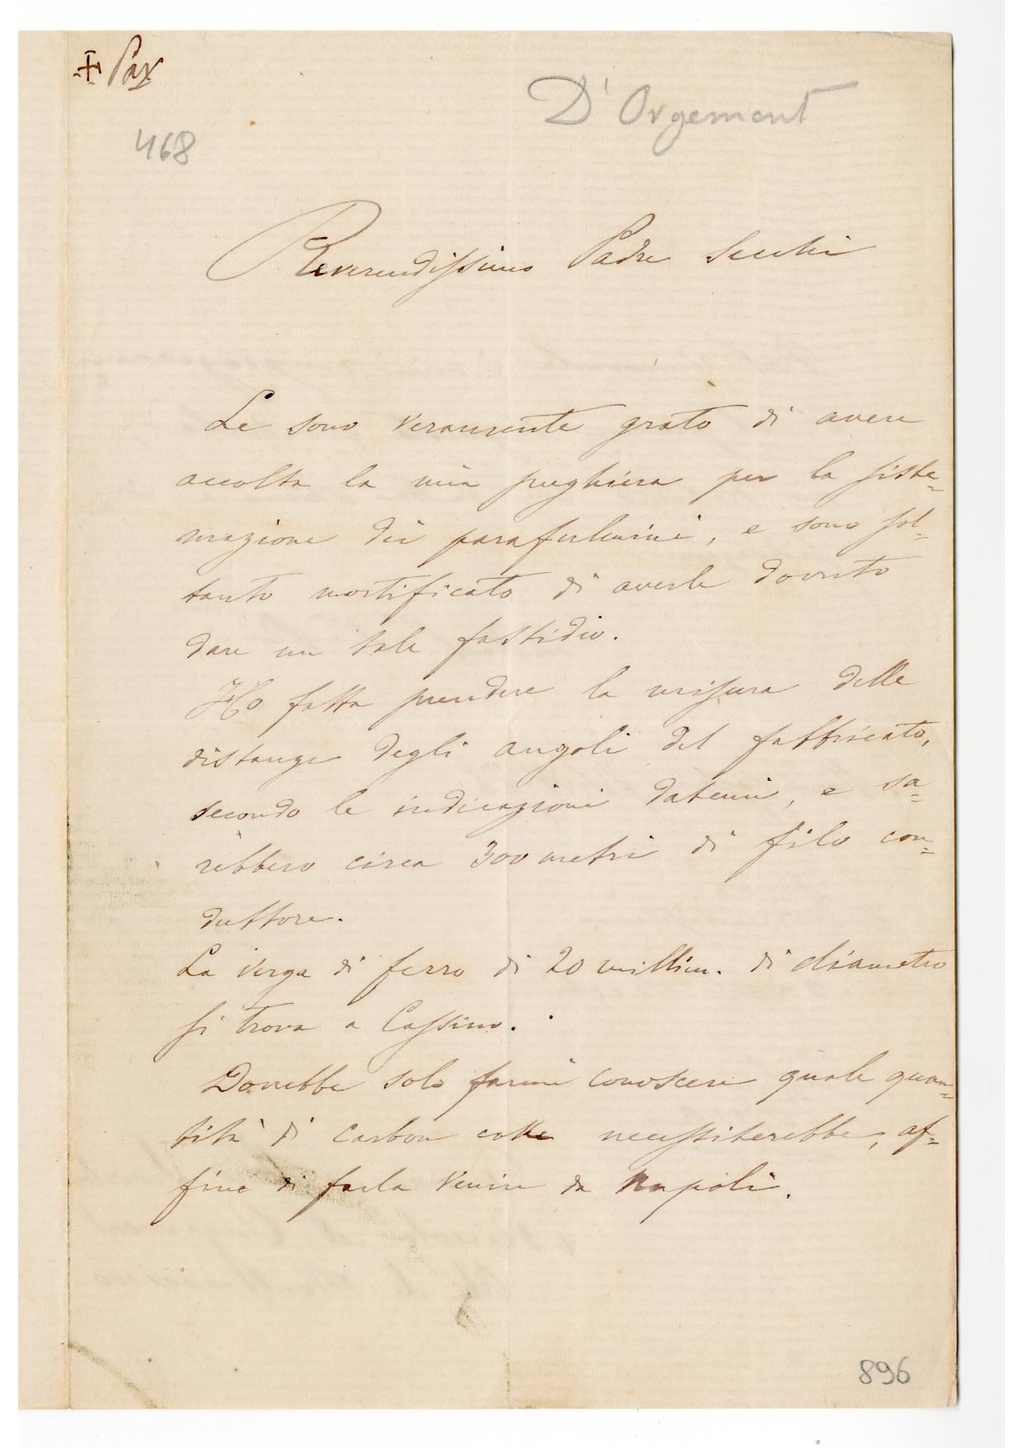 + Pax
D'Orgemont
468
Reverendissimo Padre Secchi
Le sono veramente grato di avere
accolta la mia preghiera per la siste=
mazione dei parafulmini, e sono sol=
tanto mortificato di averle dovuto
dare un tale fastidio.
Ho fatta prendere la misura delle
distanze degli angoli del fabbricato,
secondo le indicazioni datemi, e sa=
rebbero circa 300 metri di filo con=
duttore.
La verga di ferro di 20 millim. di diametro
si trova a Cassino.
Dovrebbe solo farmi conoscere quale quan=
tità di carbon coke necessiterebbe, af=
fine di farla venire da Napoli.
896